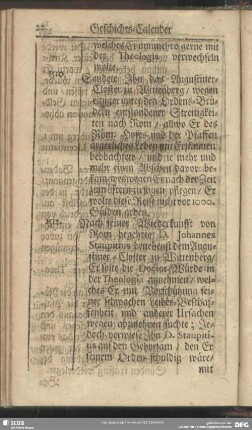 22 Geschichts-Calender
welches Er nunmehro gerne mit
der Theologia verwechseln
wolte.
1510. Sandte Ihn das Augustiner-
Closter zu Wittenberg / wegen
einiger unter den Ordens-Brü-
dern entstandener Streitigkei-
ten nach Rom / allwo Er des
Röm. Hofes und der Pfaffen
ärgerliches Leben mit Erstaunen
beobachtete / und je mehr und
mehr einen Abscheu davor be-
kam, weswegen Er nach der Zeit
zum öfftern zu sagen pflegen / Er
wolte diese Reise nicht vor 1000.
Gülden geben.
Nach seiner Wiederkunfft von
Rom begehrte D. Johannes
Staupitius benebenst dem Augu-
stiner-Closter zu Wittenberg /
Er solte die Doctor-Würde in
der Theologia annehmen / wel-
ches Er mit Vorschützung sei-
ner schwachen Leibes-Beschaf-
fenheit und anderer Ursachen
wegen / abzulehnen suchte ; Je-
doch verwiese Ihn D. Staupiti-
us auf den Gehorsam / den Er
seinem Orden schuldig wäre/
mit
SLUB
DFG